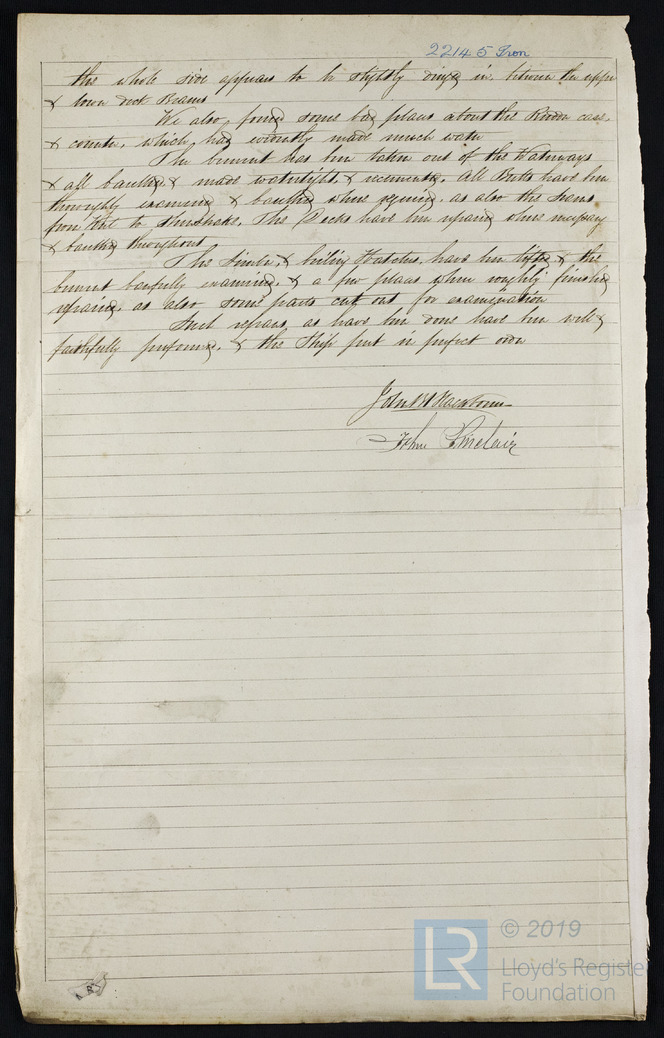 22145 Iron
the whole side appears to be slightly dinged in, between the upper
& lower deck Beams
We also found some bad places about the Rudder case,
& counter, which had evidently made much water
The cement has been taken out of the Waterways
& all caulked, & made watertight, & recemented. All Butts have been
thoroughly examined & caulked where required, as also the seams
from Keel to Sheerstrake. The Decks have been repaired where necessary
& caulked throughout
The Limber, & ceiling Hatches, have been lifted & the
cement carefully examined, & a few places where roughly finished
repaired, as also some parts cut out for examination
Such repairs, as have been done have been well &
faithfully performed, & the Ship put in perfect order
John
John Sinclair
LR © 2019
Lloyd's Register
Foundation